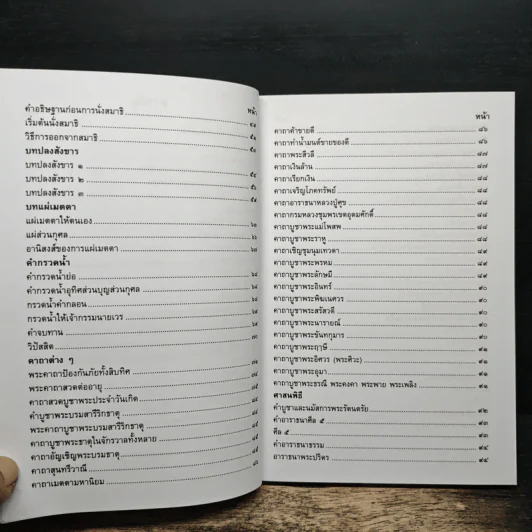 หน้า
คำอธิษฐานก่อนการนั่งสมาธิ
เริ่มต้นนั่งสมาธิ
วิธีการออกจากสมาธิ
บทปลงสังขาร
บทปลงสังขาร ๑
บทปลงสังขาร ๒
บทปลงสังขาร ๓
บทแผ่เมตตา
แผ่เมตตาให้ตนเอง
แผ่ส่วนกุศล
อานิสงส์ของการแผ่เมตตา
คำกรวดน้ำ
คำกรวดน้ำย่อ
คำกรวดน้ำอุทิศส่วนบุญส่วนกุศล
กรวดน้ำคำกลอน
กรวดน้ำให้เจ้ากรรมนายเวร
คำจบทาน
วิปัสสิต
คาถาต่าง ๆ
พระคาถาป้องกันภัยทั้งสิบทิศ
พระคาถาสวดต่ออายุ
คาถาสวดบูชาพระประจำวันเกิด
คำบูชาพระบรมสารีริกธาตุ
พระคาถาบูชาพระบรมสารีริกธาตุ
คาถาบูชาพระธาตุในจักรวาลทั้งหลาย
คาถาอัญเชิญพระบรมธาตุ
คาถาสุนทรีวาณี
คาถาเมตตามหานิยม
หน้า
คาถาค้าขายดี ๘๖
คาถาทำน้ำมนต์ขายของดี ๘๖
คาถาพระสีวลี ๘๗
คาถาเงินล้าน ๘๗
คาถาเรียกเงิน ๘๘
คาถาเจริญโภคทรัพย์ ๘๘
คาถาอาราธนาหลวงปู่ศุข ๘๘
คาถากรมหลวงชุมพรเขตอุดมศักดิ์ ๘๘
คาถาบูชาพระแม่โพสพ ๘๘
คาถาบูชาพระราหู ๘๙
คาถาเชิญชุมนุมเทวดา ๘๙
คาถาบูชาพระพรหม ๘๙
คาถาบูชาพระลักษมี ๘๙
คาถาบูชาพระอินทร์ ๙๐
คาถาบูชาพระพิฆเนศวร ๙๐
คาถาบูชาพระสรัสวดี ๙๐
คาถาบูชาพระนารายณ์ ๙๐
คาถาบูชาพระขันทกุมาร ๙๐
คาถาบูชาพระฤๅษี ๙๑
คาถาบูชาพระอิศวร (พระศิวะ) ๙๑
คาถาบูชาพระอุมา ๙๑
คาถาบูชาพระธรณี พระคงคา พระพาย พระเพลิง ๙๑
ศาสนพิธี
คำบูชาและนมัสการพระรัตนตรัย ๙๒
คำอาราธนาศีล ๕ ๙๓
ศีล ๕ ๙๓
คำอาราธนาธรรม ๙๔
อาราธนาพระปริตร ๙๔